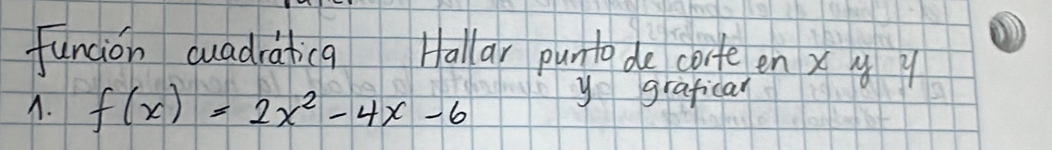 Función cuadrática Hallar punto de corte en x y y
y gráficar
1. f(x) = 2x² - 4x - 6